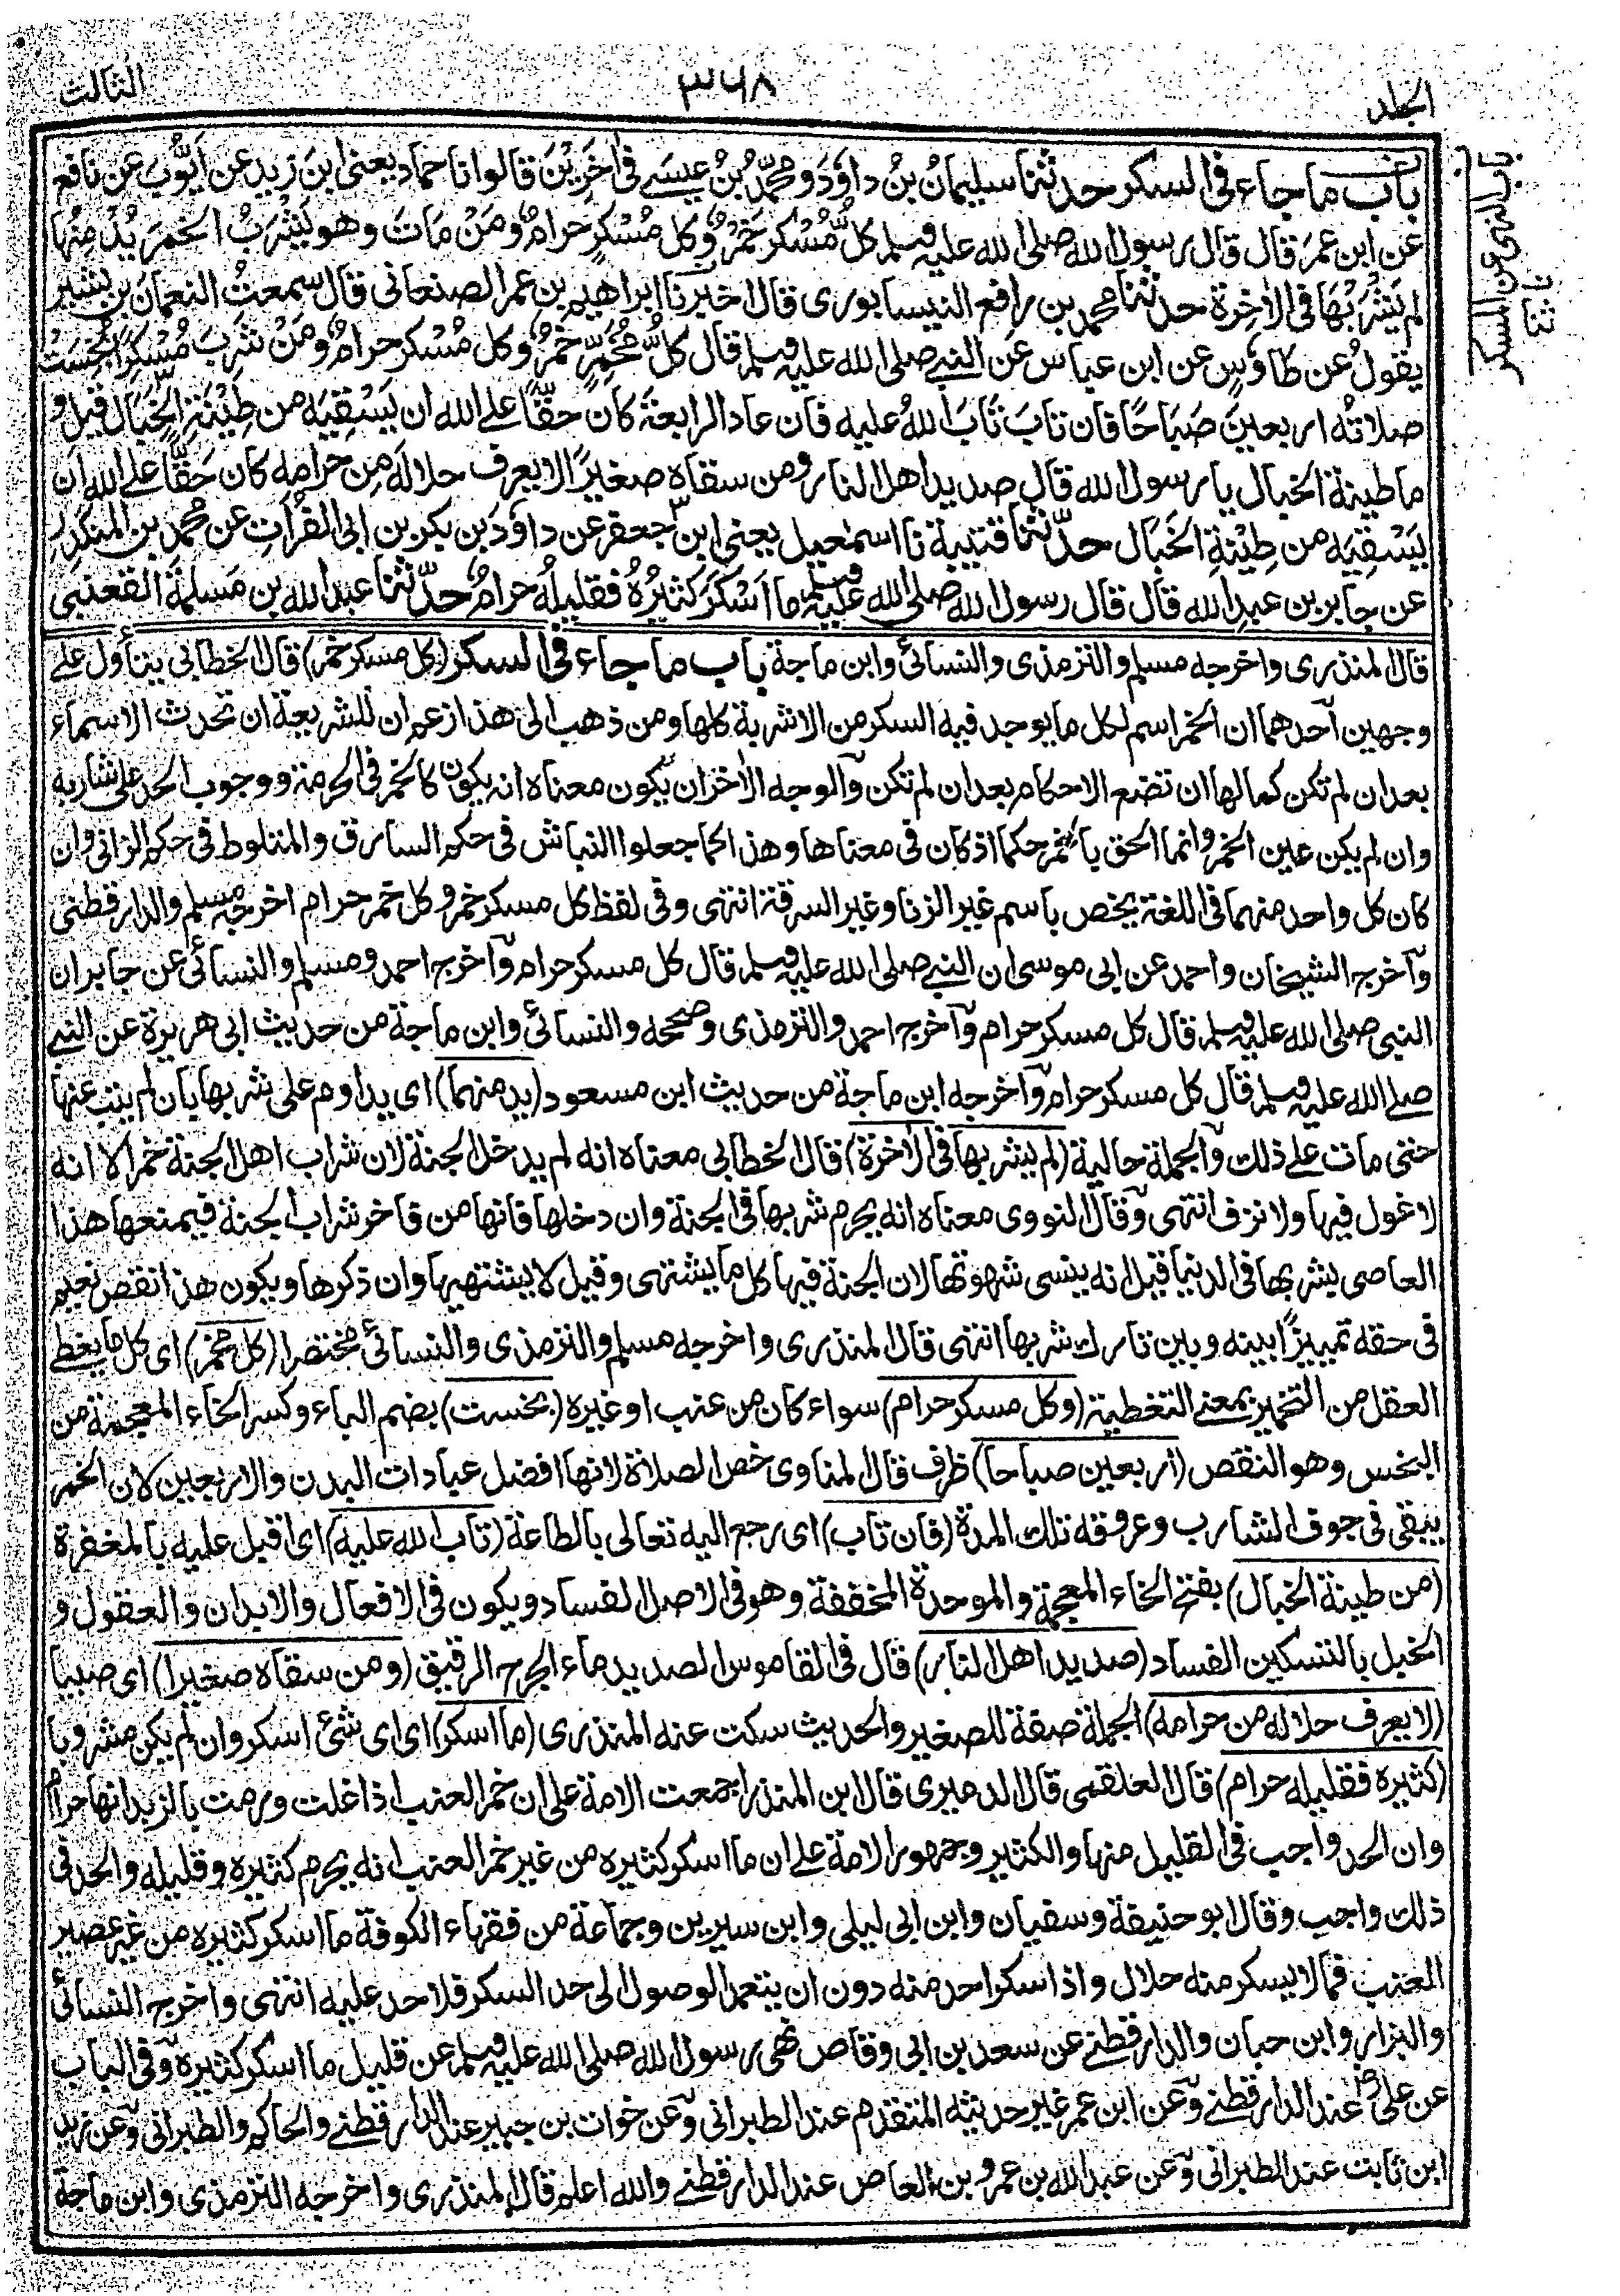 الجلد
٣٦٨
الثالث
باب النهى عن المسكر
نا
ثنا
باب ما جاء فى السكر حدثنا سليمانُ بنُ داوٗدَ ومحمّدُ بنُ عيسے فى اٰخَرِيْنَ قالوا نا حماد يعنى ابنَ زيدٍ عن اَيُّوْبَ عن نافع
عن ابنِ عمرَ قال قال رسول الله صلى الله عليه وسلم كلُّ مُسْكرٍ خمرٌ وكل مُسْكرٍ حرامٌ ومَنْ مَاتَ وهو يَشْرَبُ الخمرَ يُدْمِنُها
لم يَشْرَبْهَا فى الاٰخِرَة حدثنا محمد بن رافع النيسابورى قال اخبرنا ابراهيم بن عمر الصنعانى قال سمعتُ النعمانَ بن بشير
يقولُ عن طاوٗسٍ عن ابن عباس عن النبے صلى الله عليه وسلم قال كلُّ مُخَمِّرٍ خمرٌ وكل مُسْكرٍ حرامٌ ومَنْ شَرِبَ مُسْكرًا بُخِسَتْ
صلاتُه اربعينَ صَبَاحًا فان تابَ تَابَ اللهُ عليه فان عاد الرابعةَ كانَ حقًّا علے الله ان يَسْقِيَه من طِيْنَة الخَبَال قيل و
ما طينةُ الخبال يا رسول الله قال صديد اهل النار ومن سقاه صغيرًا لا يعرف حلالَه مِن حرامه كان حَقًّا علے الله ان
يَسْقِيَه من طِيْنةِ الخَبَال حدّثنا قتيبة نا اسمٰعيل يعنى ابن جعفر عن داوٗدَ بن بكر بن ابى الفُرَاتِ عن محمد بن المنكدر
عن جابر بن عبدِ الله قال قال رسول الله صلى الله عليه وسلم ما اَسْكَرَ كثيرُهُ فقليلُه حرامٌ حدّثنا عبد الله بن مَسلمةَ القعنبى
قال المنذرى واخرجه مسلم والترمذى والنسائى وابن ماجة باب ما جاء فى السكر (كل مسكر خمر) قال الخطابى يتأول علے
وجهين اٰحدهما ان الخمر اسم لكل ما يوجد فيه السكر من الاشربة كلها ومن ذهب الى هذا زعم ان للشريعة ان تحدث الاسماء
بعد ان لم تكن كما لها ان تضع الاحكام بعد ان لم تكن والوجه الاٰخر ان يكون معناه انه يكون كالخمر فى الحرمة ووجوب الحد على شاربه
وان لم يكن عين الخمر وانما الحق بالخمر حكما اذ كان فى معناها وهذا كما جعلوا النباش فى حكم السارق والمتلوط فى حكم الزانى وان
كان كل واحد منهما فى اللغة يخص باسم غير الزنا وغير السرقة انتهى وفى لفظ كل مسكر خمر وكل خمر حرام اخرجه مسلم والدارقطنى
واٰخرج الشيخان واحمد عن ابى موسى ان النبے صلى الله عليه وسلم قال كل مسكر حرام واٰخرج احمد ومسلم والنسائى عن جابر ان
النبى صلى الله عليه وسلم قال كل مسكر حرام واٰخرج احمد والترمذى وصححه والنسائى وابن ماجة من حديث ابى هريرة عن النبے
صلے الله عليه وسلم قال كل مسكر حرام واٰخرجه ابن ماجة من حديث ابن مسعود (يدمنها) اى يداوم على شربها بان لم يتب عنها
حتى مات علے ذلك والجملة حالية (لم يشربها فى الاٰخرة) قال الخطابى معناه انه لم يدخل الجنة لان شراب اهل الجنة خمر الا انه
لا غول فيها ولا نزف انتهى وقال النووى معناه انه يحرم شربها فى الجنة وان دخلها فانها من فاخر شراب الجنة فيمنعها هذا
العاصى يشربها فى الدنيا قيل انه ينسى شهوتها لان الجنة فيها كل ما يشتهى وقيل لا يشتهيها وان ذكرها ويكون هذا نقص نعيم
فى حقه تمييزًا بينه وبين تارك شربها انتهى قال المنذرى واخرجه مسلم والترمذى والنسائى مختصرا (كل مخمر) اى كل ما يغطے
العقل من التخمير بمعنے التغطية (وكل مسكر حرام) سواء كان من عنب او غيره (بخست) بضم الباء وكسر الخاء المعجمة من
البخس وهو النقص (اربعين صباحا) ظرف قال المناوى خص الصلاة لانها افضل عبادات البدن والاربعين لان الخمر
يبقى فى جوف الشارب وعروقه تلك المدة (فان تاب) اى رجع اليه تعالى بالطاعة (تاب الله عليه) اى اقبل عليه بالمغفرة
(من طينة الخبال) بفتح الخاء المعجمة والموحدة المخففة وهو فى الاصل الفساد ويكون فى الافعال والابدان والعقول و
الخبل بالتسكين الفساد (صديد اهل النار) قال فى القاموس الصديد ماء الجرح الرقيق (ومن سقاه صغيرا) اى صبيا
(لا يعرف حلاله من حرامه) الجملة صفة للصغير والحديث سكت عنه المنذرى (ما اسكر) اى اى شئ اسكر وان لم يكن مشروبا
(كثيره فقليله حرام) قال العلقمى قال الدميرى قال ابن المنذر اجمعت الامة على ان خمر العنب اذا غلت ورمت بالزبد انها حرام
وان الحد واجب فى القليل منها والكثير وجمهور الامة علے ان ما اسكر كثيره من غير خمر العنب انه يحرم كثيره وقليله والحد فى
ذلك واجب وقال ابو حنيفة وسفيان وابن ابى ليلى وابن سيرين وجماعة من فقهاء الكوفة ما اسكر كثيره من غير عصير
العنب فما لا يسكر منه حلال واذا سكر احد منه دون ان يتعمد الوصول الى حد السكر فلا حد عليه انتهى واخرج النسائى
والبزار وابن حبان والدارقطنے عن سعد بن ابى وقاص نهى رسول الله صلى الله عليه وسلم عن قليل ما اسكر كثيره وفى الباب
عن على رض عند الدارقطنے وعن ابن عمر غير حديثه المتقدم عند الطبرانى وعن خوات بن جبير عند الدارقطنے والحاكم والطبرانى وعن زيد
ابن ثابت عند الطبرانى وعن عبد الله بن عمرو بن العاص عند الدارقطنے والله اعلم قال المنذرى واخرجه الترمذى وابن ماجة